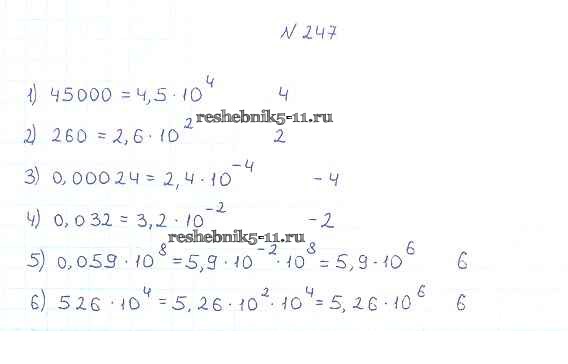 N 247
1) 45000 = 4,5 · 10⁴ 4
reshebnik5-11.ru
2) 260 = 2,6 · 10² 2
3) 0,00024 = 2,4 · 10⁻⁴ -4
4) 0,032 = 3,2 · 10⁻² -2
reshebnik5-11.ru
5) 0,059 · 10⁸ = 5,9 · 10⁻² · 10⁸ = 5,9 · 10⁶ 6
6) 526 · 10⁴ = 5,26 · 10² · 10⁴ = 5,26 · 10⁶ 6